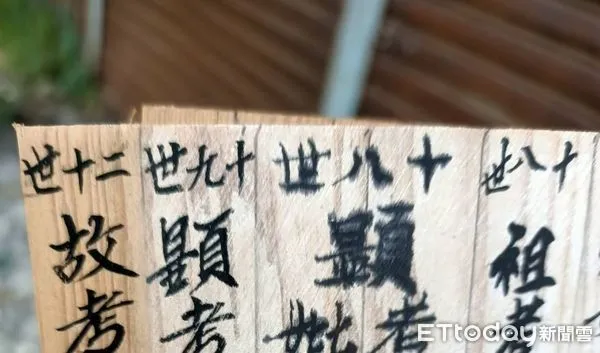 十八世
祖考
十八世
顯
考妣
十九世
顯考
二十世
故考
ETtoday新聞雲